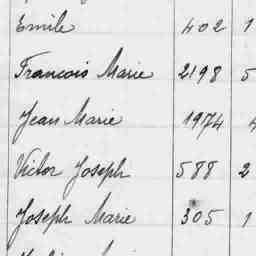 Emile 402 1
Francois Marie 2198 5
Jean Marie 1974 4
Victor Joseph 588 2
Joseph Marie 305 1